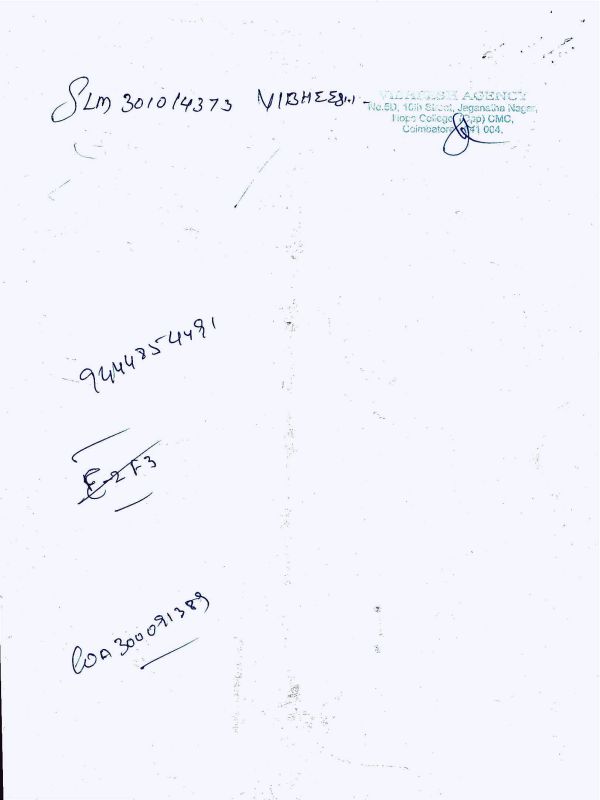 SLM 3010/4373 AGENCY
No.5D, 10th Street, Jaganatha Nagar,
Hope College (Opp) CMC,
Coimbatore 641 004.
9444854491
F3
COA300091389